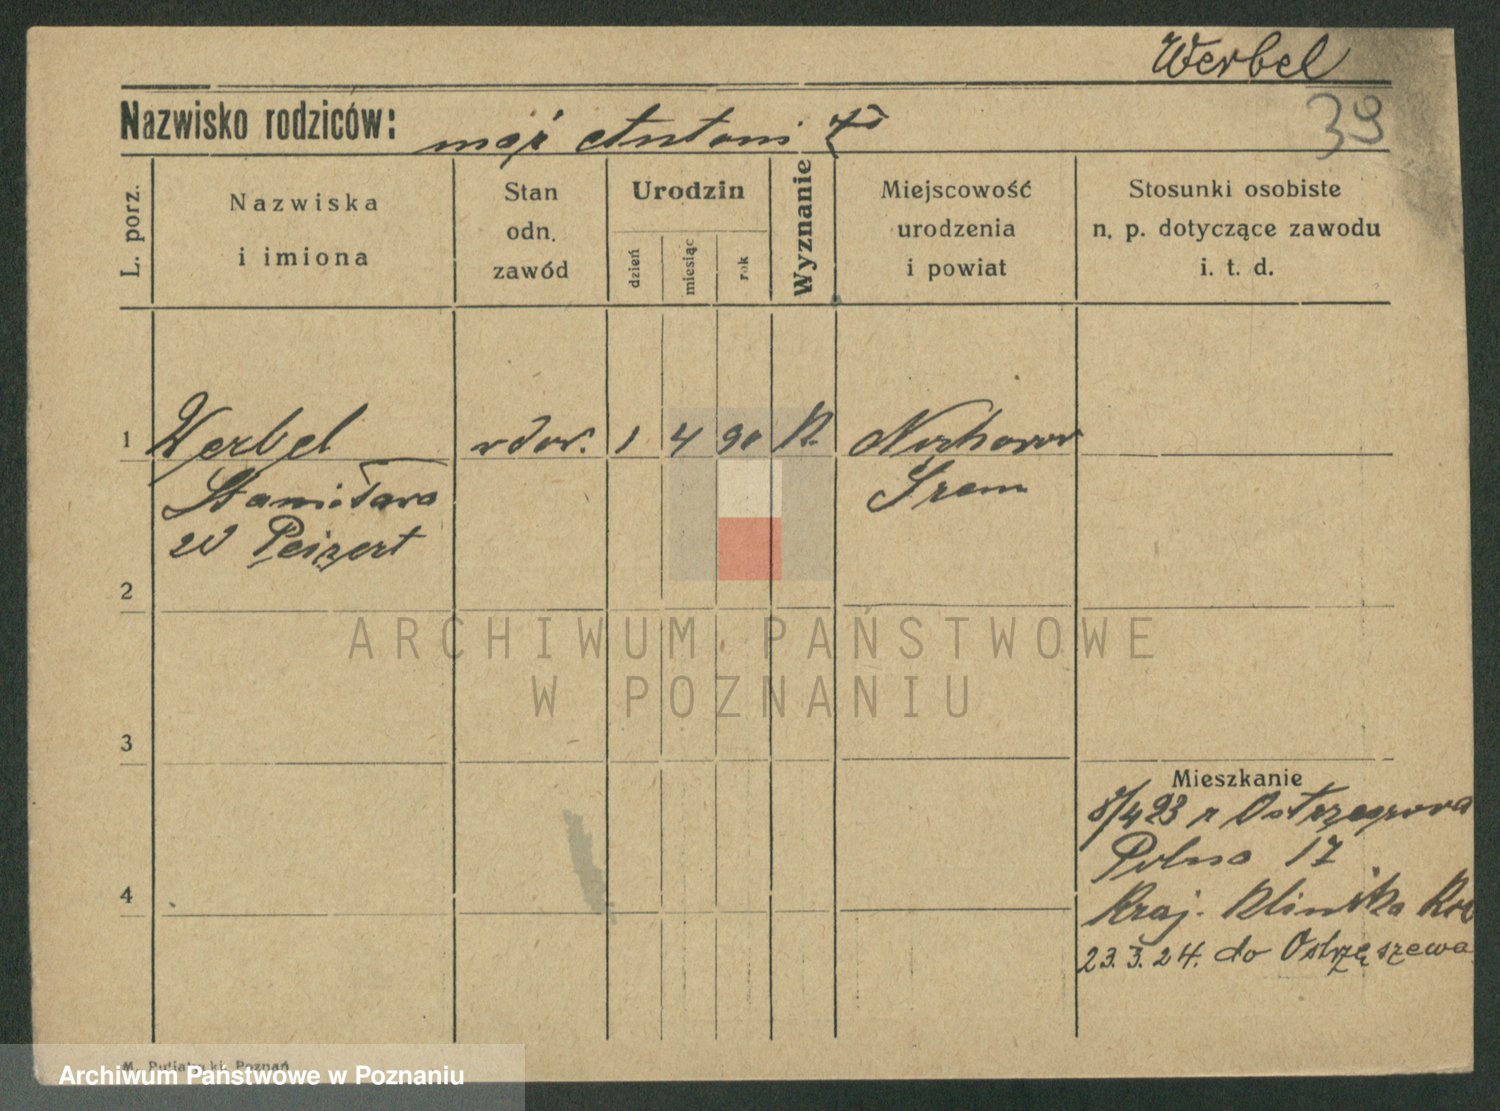 Werbel
39
Nazwisko rodziców: mąż Antoni
L. porz.
Nazwiska
i imiona
Stan
odn.
zawód
Urodzin
dzień
miesiąc
rok
Wyznanie
Miejscowość
urodzenia
i powiat
Stosunki osobiste
n. p. dotyczące zawodu
i. t. d.
1 Werbel wdow. 1 4 90 K.
Stanisława Śrem
zd Peizert
2
ARCHIWUM PAŃSTWOWE
W POZNANIU
3
Mieszkanie
/4 23 z Ostrzeszowa
Polna 17
Kraj. Klinika
4
23. 3. 24. do Ostrzęszewa
M. Putiatycki, Poznań
Archiwum Państwowe w Poznaniu